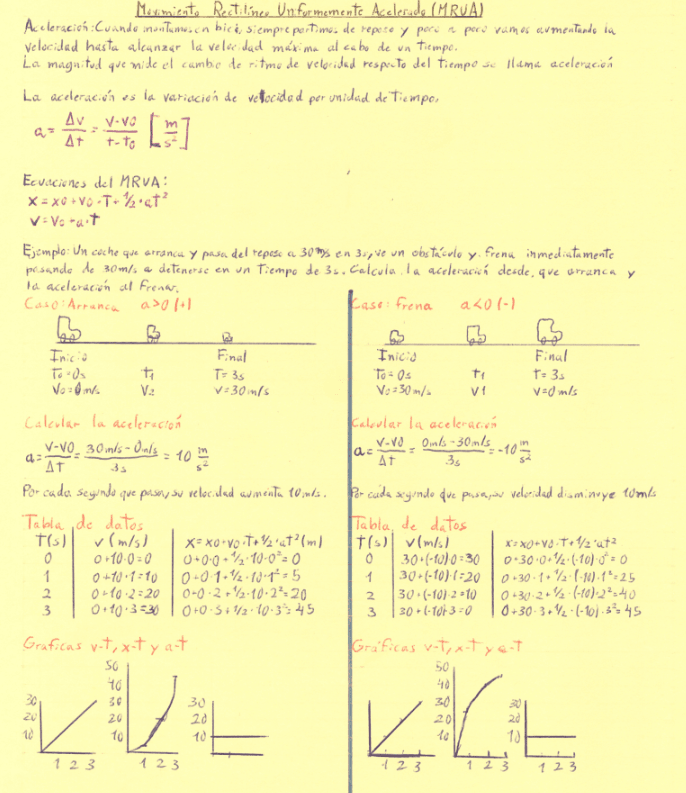 Movimiento Rectilíneo Uniformemente Acelerado (MRUA)
Aceleración: Cuando montamos en bici, siempre partimos de reposo y poco a poco vamos aumentando la
velocidad hasta alcanzar la velocidad máxima al cabo de un tiempo.
La magnitud que mide el cambio de ritmo de velocidad respecto del tiempo se llama aceleración
La aceleración es la variación de velocidad por unidad de tiempo.
a = Δv/Δt = v-v0/t-t0 [m/s²]
Ecuaciones del MRUA:
x = x0 + v0 · T + 1/2 · at²
v = v0 + a · t
Ejemplo: Un coche que arranca y pasa del reposo a 30 m/s en 3s, ve un obstáculo y frena inmediatamente
pasando de 30m/s a detenerse en un Tiempo de 3s. Calcula la aceleración desde que arranca y
la aceleración al frenar.
Caso: Arranca a>0 (+)
Inicio Final
T0=0s t1 T=3s
V0=0m/s V2 V=30m/s
Calcular la aceleración
a = V-V0/ΔT = 30m/s-0m/s/3s = 10 m/s²
Por cada segundo que pasa, su velocidad aumenta 10m/s.
Tabla de datos
T(s) V (m/s) X=X0+V0·T+1/2·at²(m)
0 0+10·0=0 0+0·0+1/2·10·0²=0
1 0+10·1=10 0+0·1+1/2·10·1²=5
2 0+10·2=20 0+0·2+1/2·10·2²=20
3 0+10·3=30 0+0·3+1/2·10·3²=45
Graficas v-T, x-T y a-T
30
20
10
1 2 3
50
40
30
20
10
1 2 3
30
20
10
Caso: frena a<0 (-)
Inicio Final
T0=0s t1 t=3s
V0=30m/s V1 V=0m/s
Calcular la aceleración
a = V-V0/ΔT = 0m/s-30m/s/3s = -10 m/s²
Por cada segundo que pasa, su velocidad disminuye 10m/s
Tabla de datos
T(s) V(m/s) x=x0+v0·T+1/2·at²
0 30+(-10)·0=30 0+30·0+1/2·(-10)·0²=0
1 30+(-10)·1=20 0+30·1+1/2·(-10)·1²=25
2 30+(-10)·2=10 0+30·2+1/2·(-10)·2²=40
3 30+(-10)·3=0 0+30·3+1/2·(-10)·3²=45
Gráficas v-T, x-T y a-T
30
20
10
1 2 3
50
40
30
20
10
1 2 3
30
20
10
1 2 3